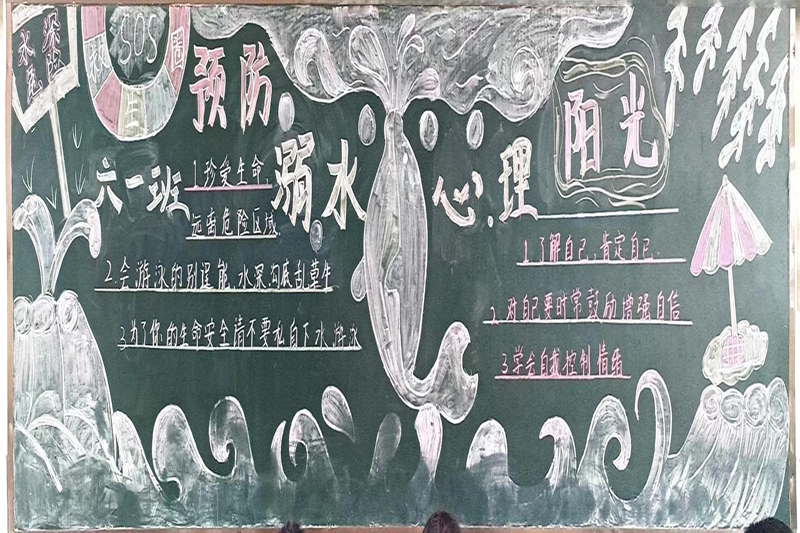 水深危险
SOS
预防
溺水
六一班
1.珍爱生命,
远离危险区域
2.会游泳的别逞能,水深沟底乱草生
3.为了你的生命安全请不要私自下水游泳
阳光
心理
1.了解自己,肯定自己.
2.对自己要时常鼓励增强自信
3.学会自我控制情绪